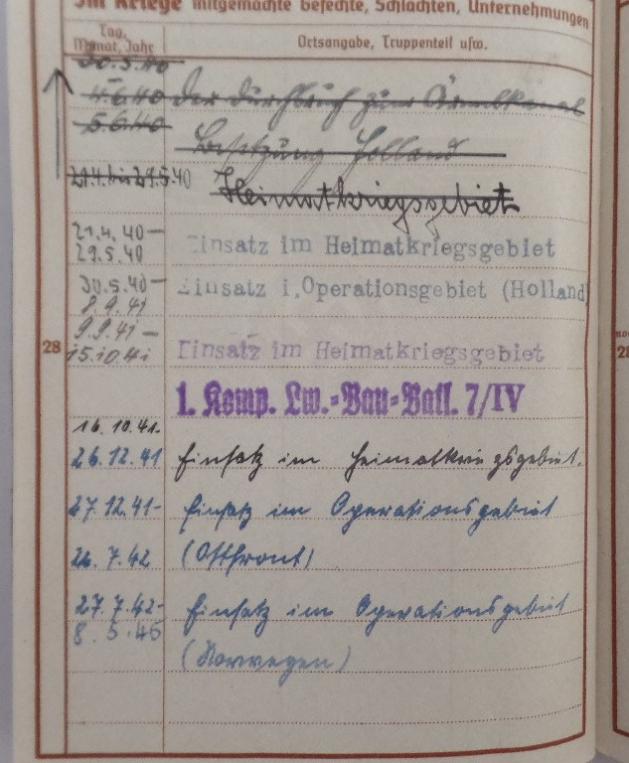 Im Kriege mitgemachte Gefechte, Schlachten, Unternehmungen
Tag,
Monat, Jahr
Ortsangabe, Truppenteil usw.
30.5.40
4.6.40 Der Durchbruch zum Ärmelkanal
5.6.40
Besetzung Holland
21.4. bis 29.5.40 Heimatkriegsgebiet
21.4.40 — Einsatz im Heimatkriegsgebiet
29.5.40
30.5.40 — Einsatz i.Operationsgebiet (Holland
8.9.41
9.9.41 —
15.10.41 Einsatz im Heimatkriegsgebiet
28
1. Komp. Lw.=Bau=Batl. 7/IV
16.10.41.
26.12.41 Einsatz im Heimatkriegsgebiet.
27.12.41- Einsatz im Operationsgebiet
26.7.42 (Ostfront)
27.7.42- Einsatz im Operationsgebiet
8.5.45
(Norwegen)